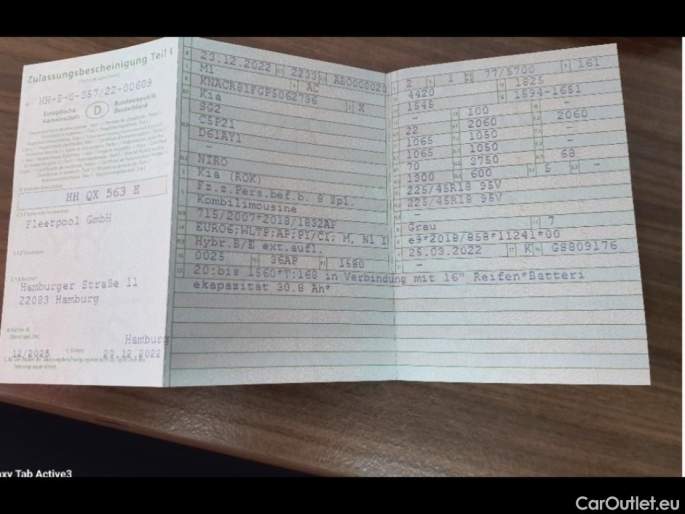 Zulassungsbescheinigung Teil I
Europäische Gemeinschaft
D
Bundesrepublik Deutschland
HH QX 563 E
Fleetpool GmbH
Hamburger Straße 11
22083 Hamburg
Hamburg
12/2025
23.12.2022
23.12.2022
2233
M1
AC
X
Kia
SG2
C5P21
D61AY1
-
NIRO
Kia (ROK)
Fz.z.Pers.bef.b. 8 Spl.
Kombilimousine
715/2007*2018/1832AP
EURO6;WLTP;AP;PI/CI; M, N1 I
Hybr.B/E ext.aufl.
0025
36AP
1580
2
1
77/5700
161
4420
1825
1545
-
100
22
2060
2060
1065
1050
-
1065
1050
-
70
3750
68
1300
600
5
-
225/45R18 95V
225/45R18 95V
-
Grau
7
e3*2018/858*11241*00
25.03.2022
K
GS809176
-
20:bis 1560*T:168 in Verbindung mit 16" Reifen*Batteri
ekapazität 30.8 Ah*
xy Tab Active3
CarOutlet.eu